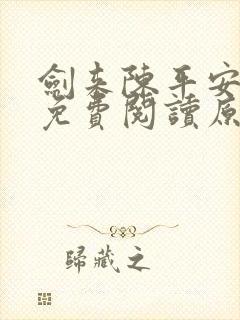 劍来陳平安
免費閱讀原
歸藏之